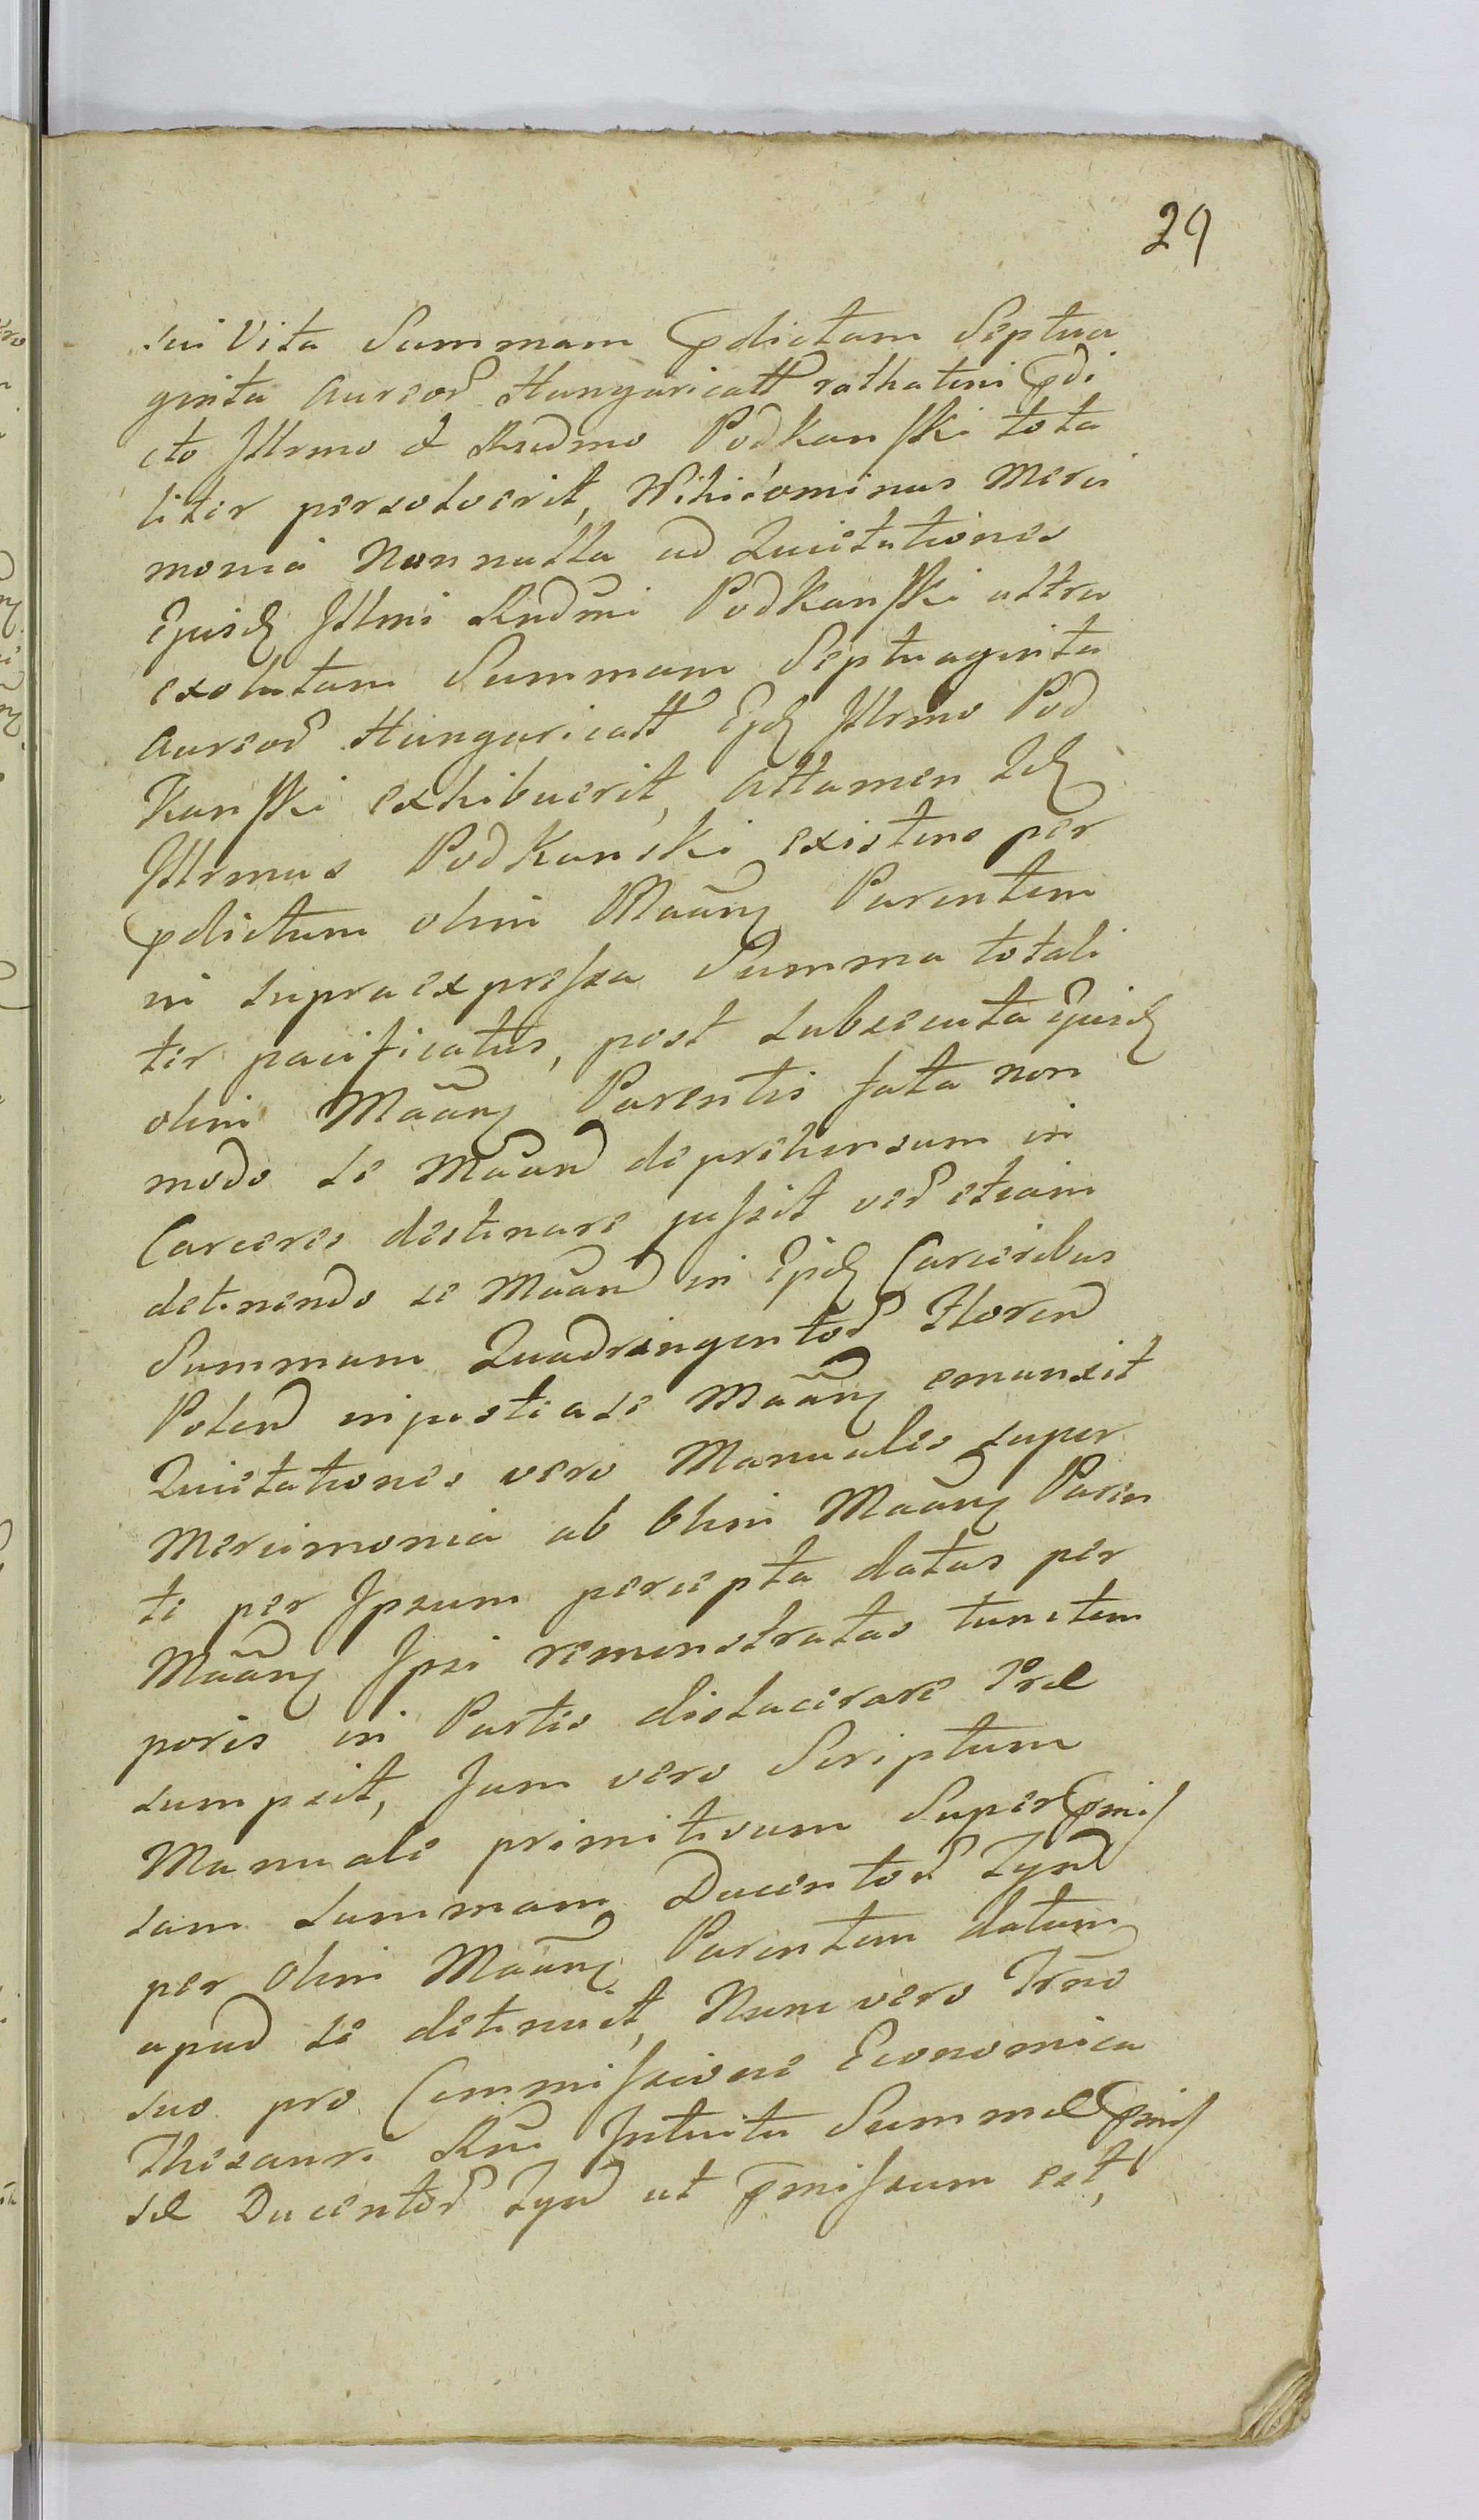 29
sui Vita Summam pdictam Septua
ginta Aureor Hungaricall rathatim pdi
cto Illrmo & Rndmo Podkanski tota
liter persolverit, Nihilominus Merci
monia Nonnulla ad Quietationes
Ejusd Illmi Rndmi Podkanski ultra
exolutam Summam Septuaginta
Aureor Hungaricall Ejd Illrmo Pod
Kanski exhibuerit, Attamen Id
Illrmus Podkanski existens per
pdictum olim Maang Parentem
in supraexpressa Summa totali
ter pacificatus, post subsecuta Ejusd
olim Maang Parentis fata non
modo se Maand deprehensum in
Carceres destinare jussit ver etiam
detinendo se Maand in Ejsd Carceribus
Summam Quadringentor Floren
Polon injuste a se Maang emunxit
Quietationes vero Manuales super
Mercimonia ab Olim Maang Paren
te per Ipsum percepta datas per
Maang Ipsi remonstratas tunctem
poris in Partes dislacerare Præ
sumpsit, Jam vero Scriptum
Manuale primitivum Super pmis
sam summam Ducentor Tynf
per Olim Maang Parentem datum
apud se detinuit, Nunc vero Frno
suo pro Commissione Economica
Thesauri Rni Intuitu Summæ pmis
sæ Ducentor Tynf ut pmissum est,